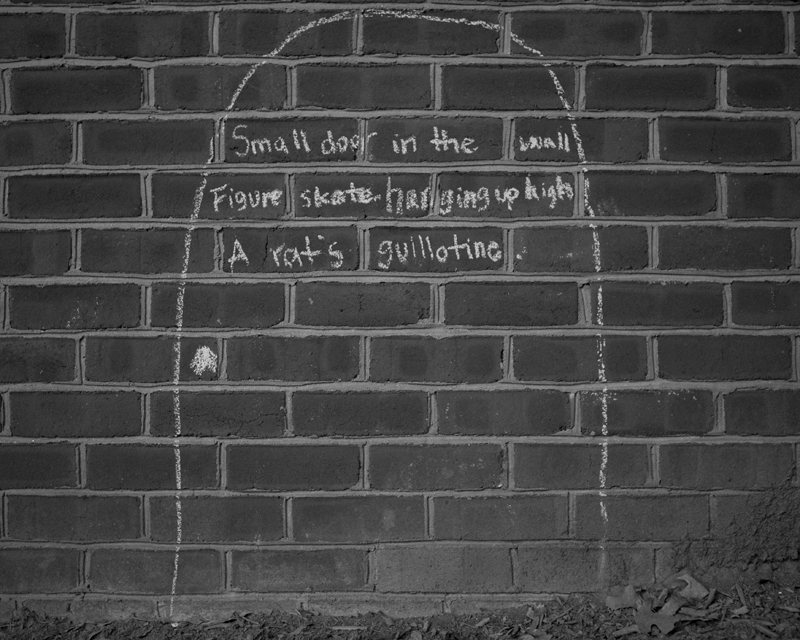 Small door in the wall
Figure skate hanging up high
A rat's guillotine.